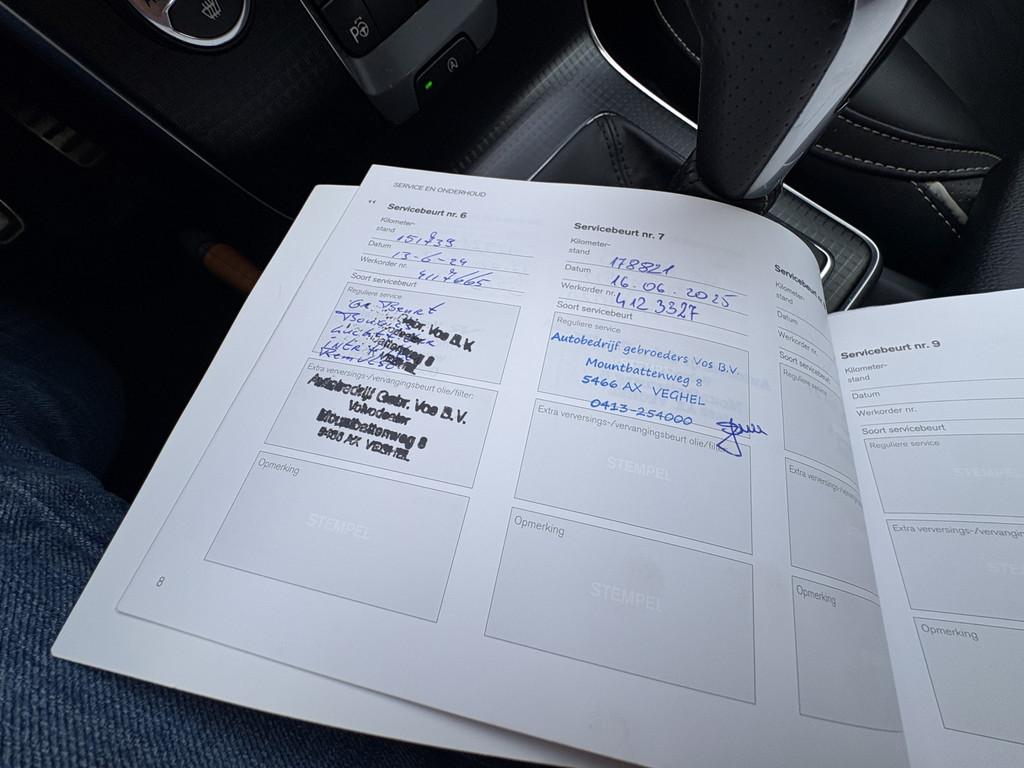 SERVICE EN ONDERHOUD
Servicebeurt nr. 6
Kilometer-
stand
151739
Datum
13-6-24
Werkorder nr.
4117665
Soort servicebeurt
Reguliere service
Gr. Beurt
Extra verversings-/vervangingsbeurt olie/filter:
Autobedrijf Gebr. Vos B.V.
Volvodealer
Mountbattenweg 8
5466 AX VEGHEL
Opmerking
STEMPEL
8
Servicebeurt nr. 7
Kilometer-
stand
178821
Datum
16.06.2025
Werkorder nr.
4123327
Soort servicebeurt
Reguliere service
Autobedrijf gebroeders Vos B.V.
Mountbattenweg 8
5466 AX VEGHEL
0413-254000
Extra verversings-/vervangingsbeurt olie/filter
STEMPEL
Opmerking
STEMPEL
Kilometer-
stand
Datum
Werkorder nr.
Soort
Reguliere
Extra
Opmerking
Servicebeurt nr. 9
Kilometer-
stand
Datum
Werkorder nr.
Soort servicebeurt
Reguliere service
Extra verversings-/vervangin
Opmerking